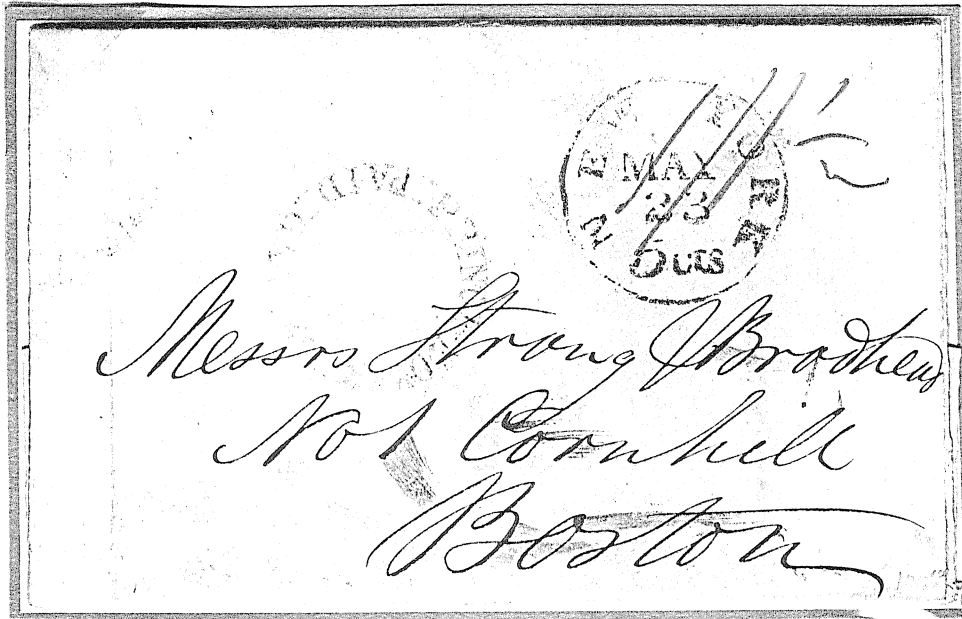 NEW YORK
MAY
23
5 cts
PAID
Messrs Strong & Brodhead
No 1 Cornhill
Boston